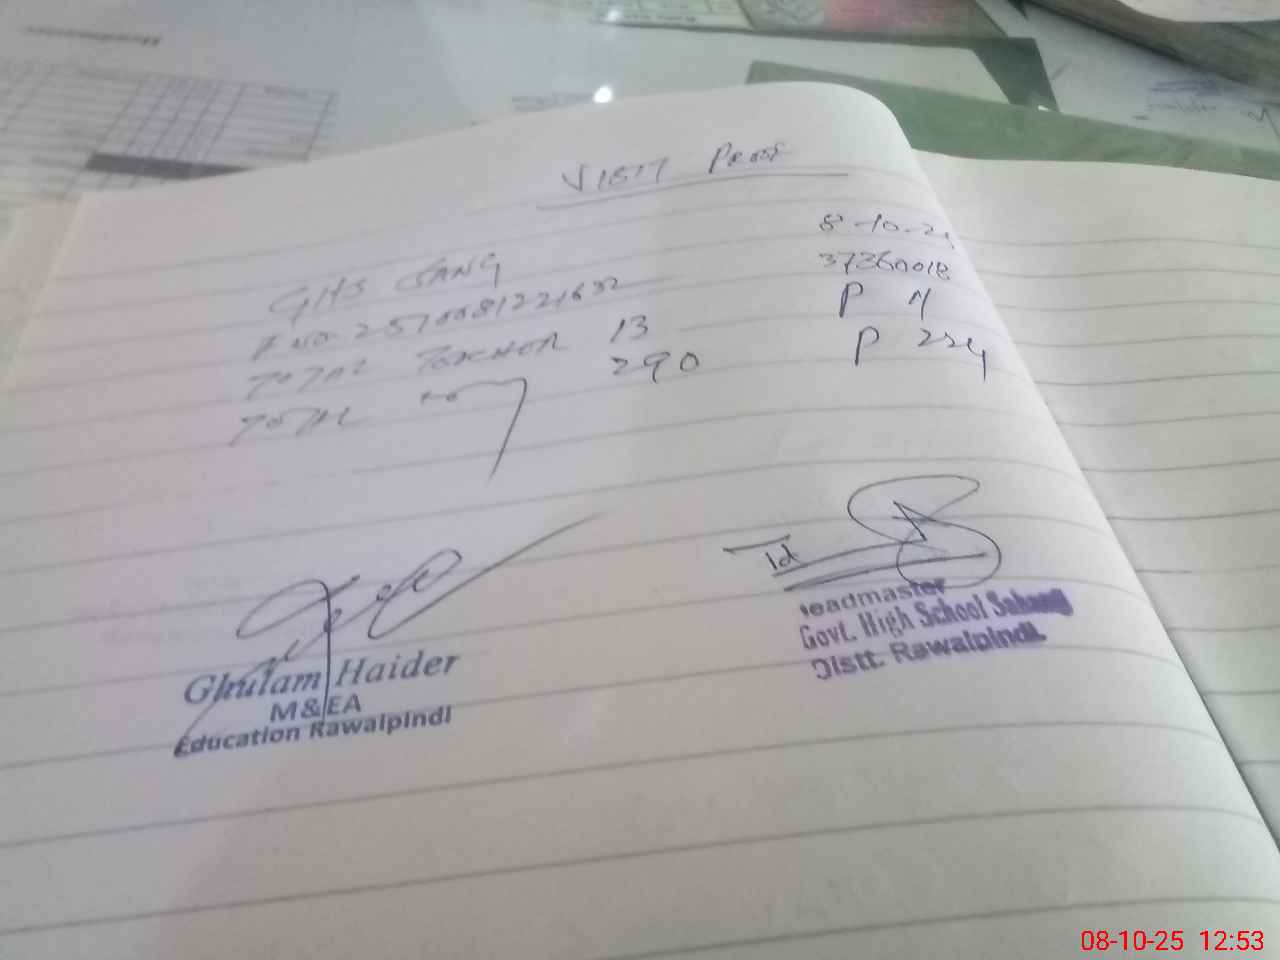 VISIT PROOF
8-10-25
GHS SANG
37360018
F NO. 2570081221632
TOTAL TEACHER 13 P 11
TOTAL 290 P 224
Td
Headmaster
Govt. High School Sahang
Distt. Rawalpindi.
Ghulam Haider
M&EA
Education Rawalpindi
08-10-25 12:53